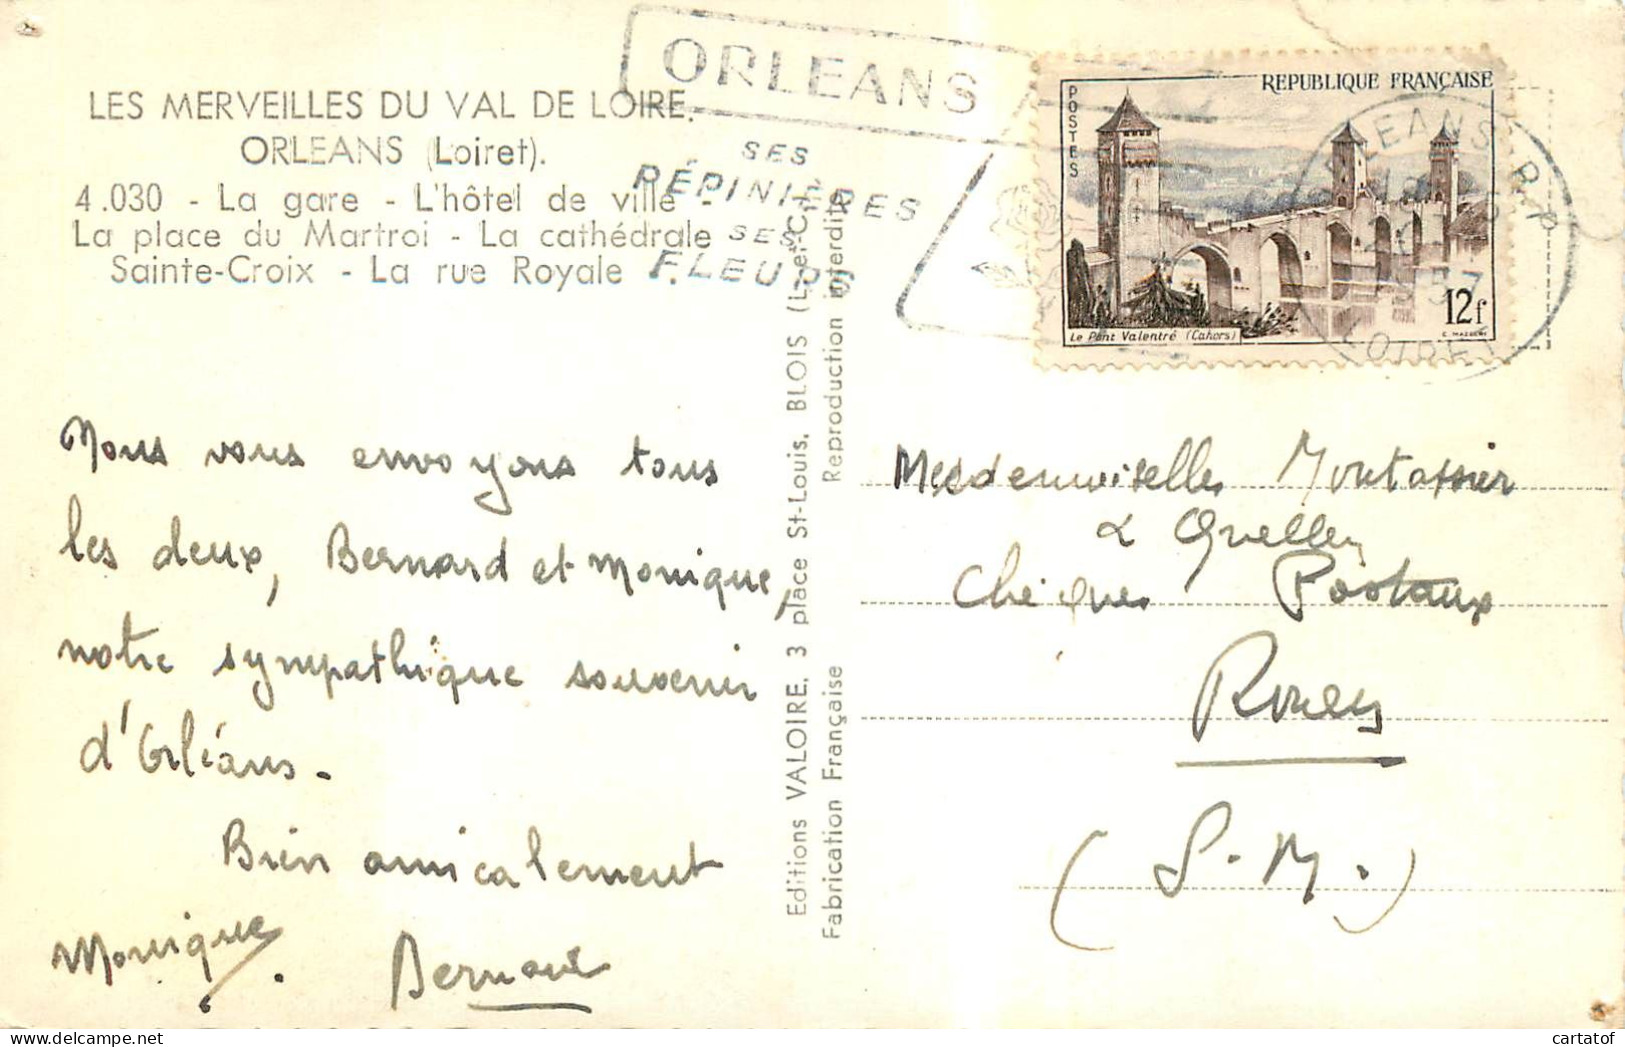 LES MERVEILLES DU VAL DE LOIRE.
ORLEANS (Loiret).
4.030 - La gare - L'hôtel de ville -
La place du Martroi - La cathédrale
Sainte-Croix - La rue Royale -
ORLEANS
SES
PÉPINIÈRES
SES
FLEURS
REPUBLIQUE FRANÇAISE
POSTES
12f
Le Pont Valentré (Cahors)
C. MAZELIN
ORLEANS R.P.
LOIRET
Nous vous envoyons tous
les deux, Bernard et Monique,
notre sympathique souvenir
d'Orléans.
Bien amicalement
Monique. Bernard
Editions VALOIRE, 3 place St-Louis, BLOIS (L.-et-C.)
Fabrication Française Reproduction interdite
Mesdemoiselles Montassier
& Quellen
Chèques Postaux
Rouen
(S.-M.)
cartatof